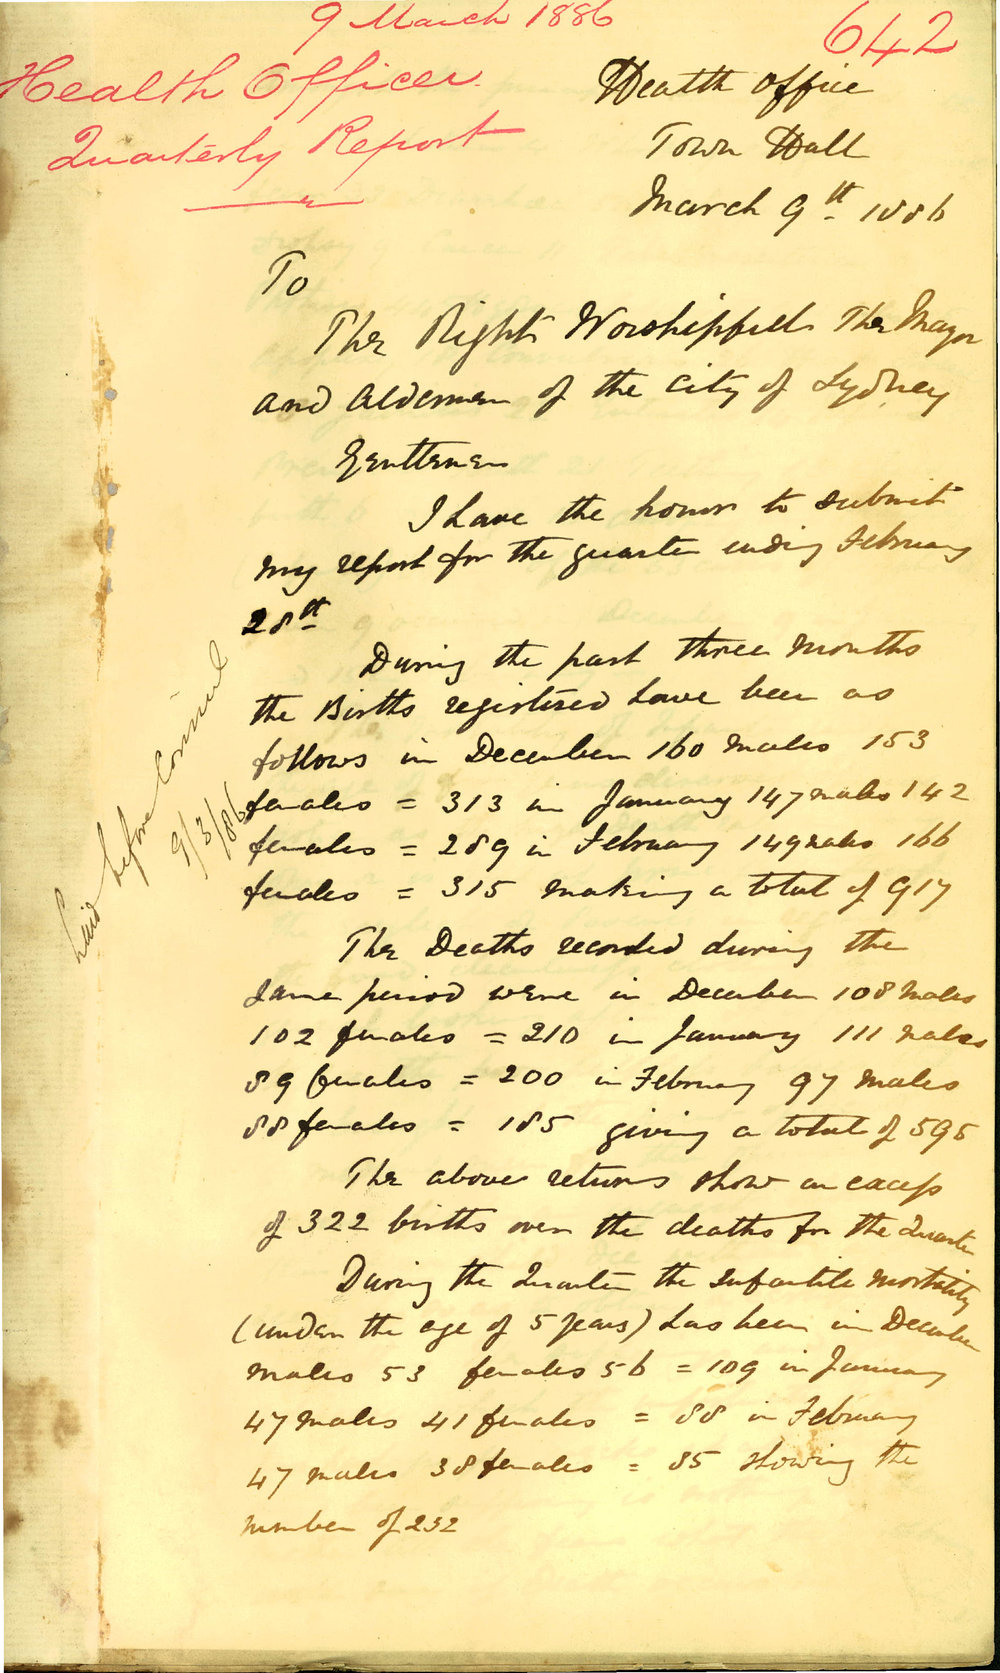 9 March 1886
642
Health Officer.
Quarterly Report
Health Office
Town Hall
March 9th 1886
To
The Right Worshipfull The Mayor
and Aldermen of the City of Sydney
Gentlemen
I have the honor to submit
my report for the quarter ending February
28th
During the past three Months
the Births registered have been as
follows in December 160 Males 153
females = 313 in January 147 Males 142
females = 289 in February 149 males 166
females = 315 making a total of 917
The Deaths recorded during the
same period were in December 108 Males
102 females = 210 in January 111 males
89 females = 200 in February 97 Males
88 females = 185 giving a total of 595
The above returns show an excess
of 322 births over the deaths for the Quarter
During the Quarter the Infantile Mortality
(under the age of 5 years) has been in December
Males 53 females 56 = 109 in January
47 Males 41 females = 88 in February
47 males 38 females = 85 showing the
number of 232
Laid before Council
9/3/86